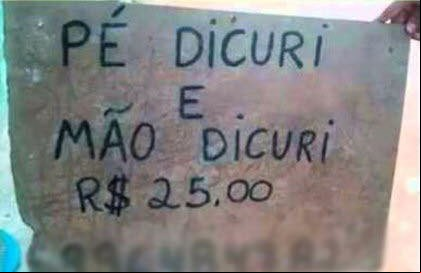 PÉ DICURI
E
MÃO DICURI
R$ 25.00